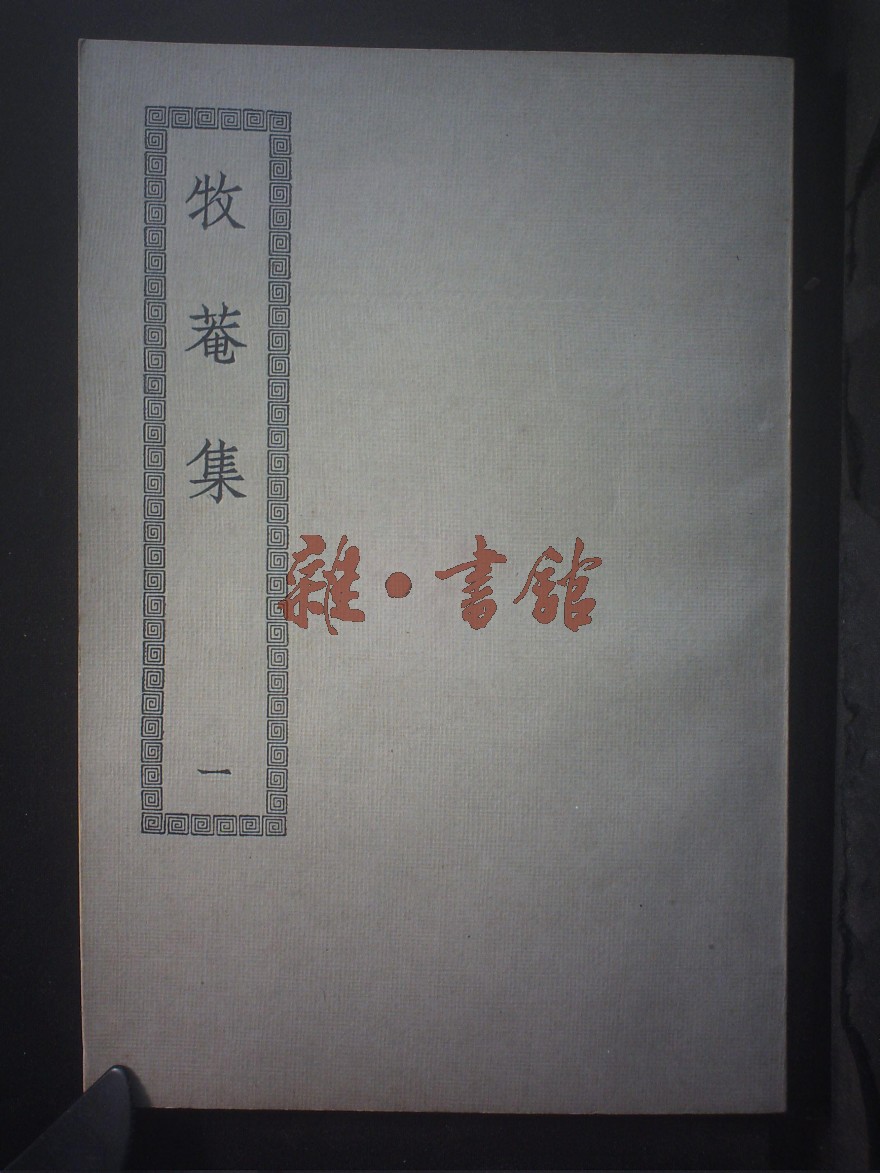 牧菴集
一
雜·書館